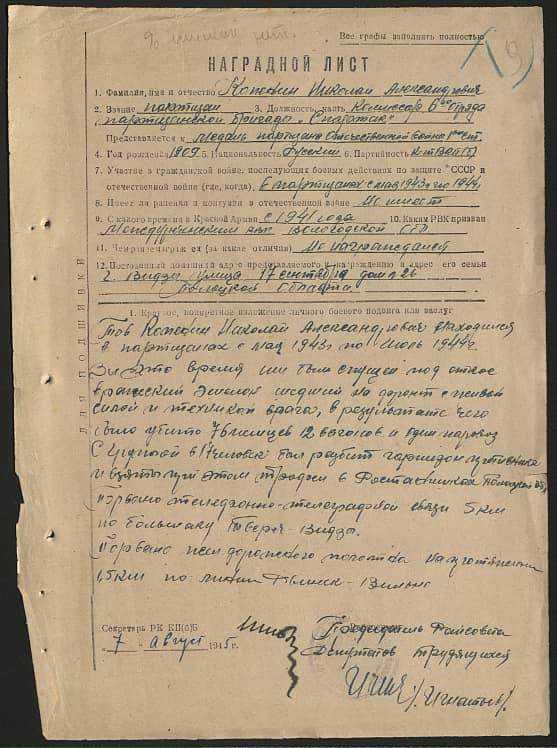 Все графы заполнять полностью
НАГРАДНОЙ ЛИСТ
1. Фамилия, имя и отчество Копейин Николай Александрович
2. Звание партизан 3. Должность, часть Комиссар 6го отряда
партизанской бригады "Спартак"
Представляется к медаль партизана Отечественной войны 1ой ст.
4. Год рождения 1909 5. Национальность русский 6. Партийность К-т ВКП(б)
7. Участие в гражданской войне, последующих боевых действиях по защите СССР и
отечественной войне (где, когда) в партизанах с мая 1943г по 1944г.
8. Имеет ли ранения и контузии в отечественной войне Не имеет
9. С какого времени в Красной Армии с 1941 года 10. Каким РВК призван
Вологодской обл
11. Чем ранее награжден (за какие отличия) Не награжденный
12. Постоянный домашний адрес представляемого к награждению и адрес его семьи
г. Видзы улица 17 сентября дом 26
Полоцкой области.
1. Краткое, конкретное изложение личного боевого подвига или заслуг
Тов Николай Александрович находился
в партизанах с мая 1943г по июль 1944г.
За это время им был спущен под откос
вражеский эшелон шедший на фронт с живой
силой и техникой врага, в результате чего
было убито 76 немцев 12 вагонов и один паровоз
С группой в 17 человек был разбит гарнизон противника
и взяты при этом трофеи в
Порвано телефонно-телеграфной связи 5 км
по большаку Тверечь-Видзы.
Порвано жел.дорожного полотна на протяжении
1,5 км по линии Двинск-Вильно
ДЛЯ ПОДШИВКИ
Секретарь РК КП(б)Б
7 август 1945 г.
Председатель Райсовета
Депутатов трудящихся
/Игнатьев/.